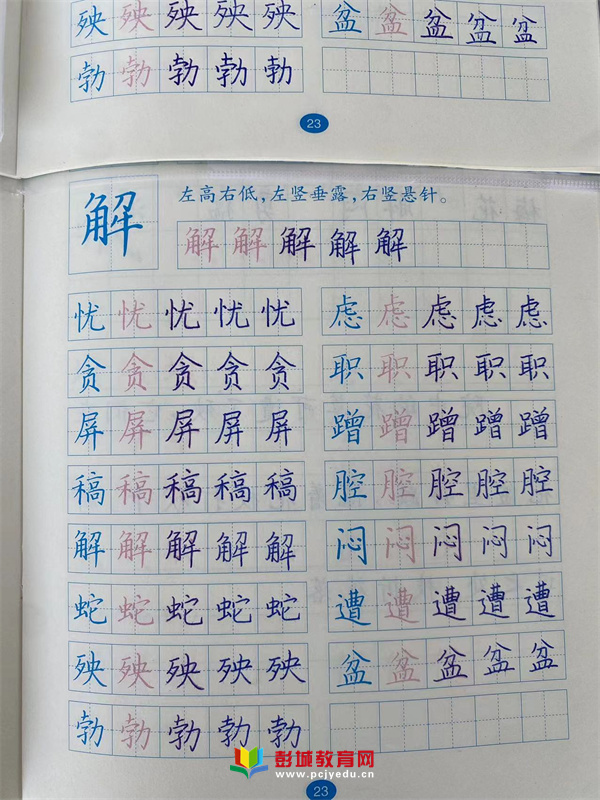 殃殃殃殃殃 盆盆盆盆盆
勃勃勃勃勃
23
解 左高右低,左竖垂露,右竖悬针。
解解解解解
忧忧忧忧忧 虑虑虑虑虑
贪贪贪贪贪 职职职职职
屏屏屏屏屏 蹭蹭蹭蹭蹭
稿稿稿稿稿 腔腔腔腔腔
解解解解解 闷闷闷闷闷
蛇蛇蛇蛇蛇 遭遭遭遭遭
殃殃殃殃殃 盆盆盆盆盆
勃勃勃勃勃
彭城教育网
www.pcjyedu.cn
23